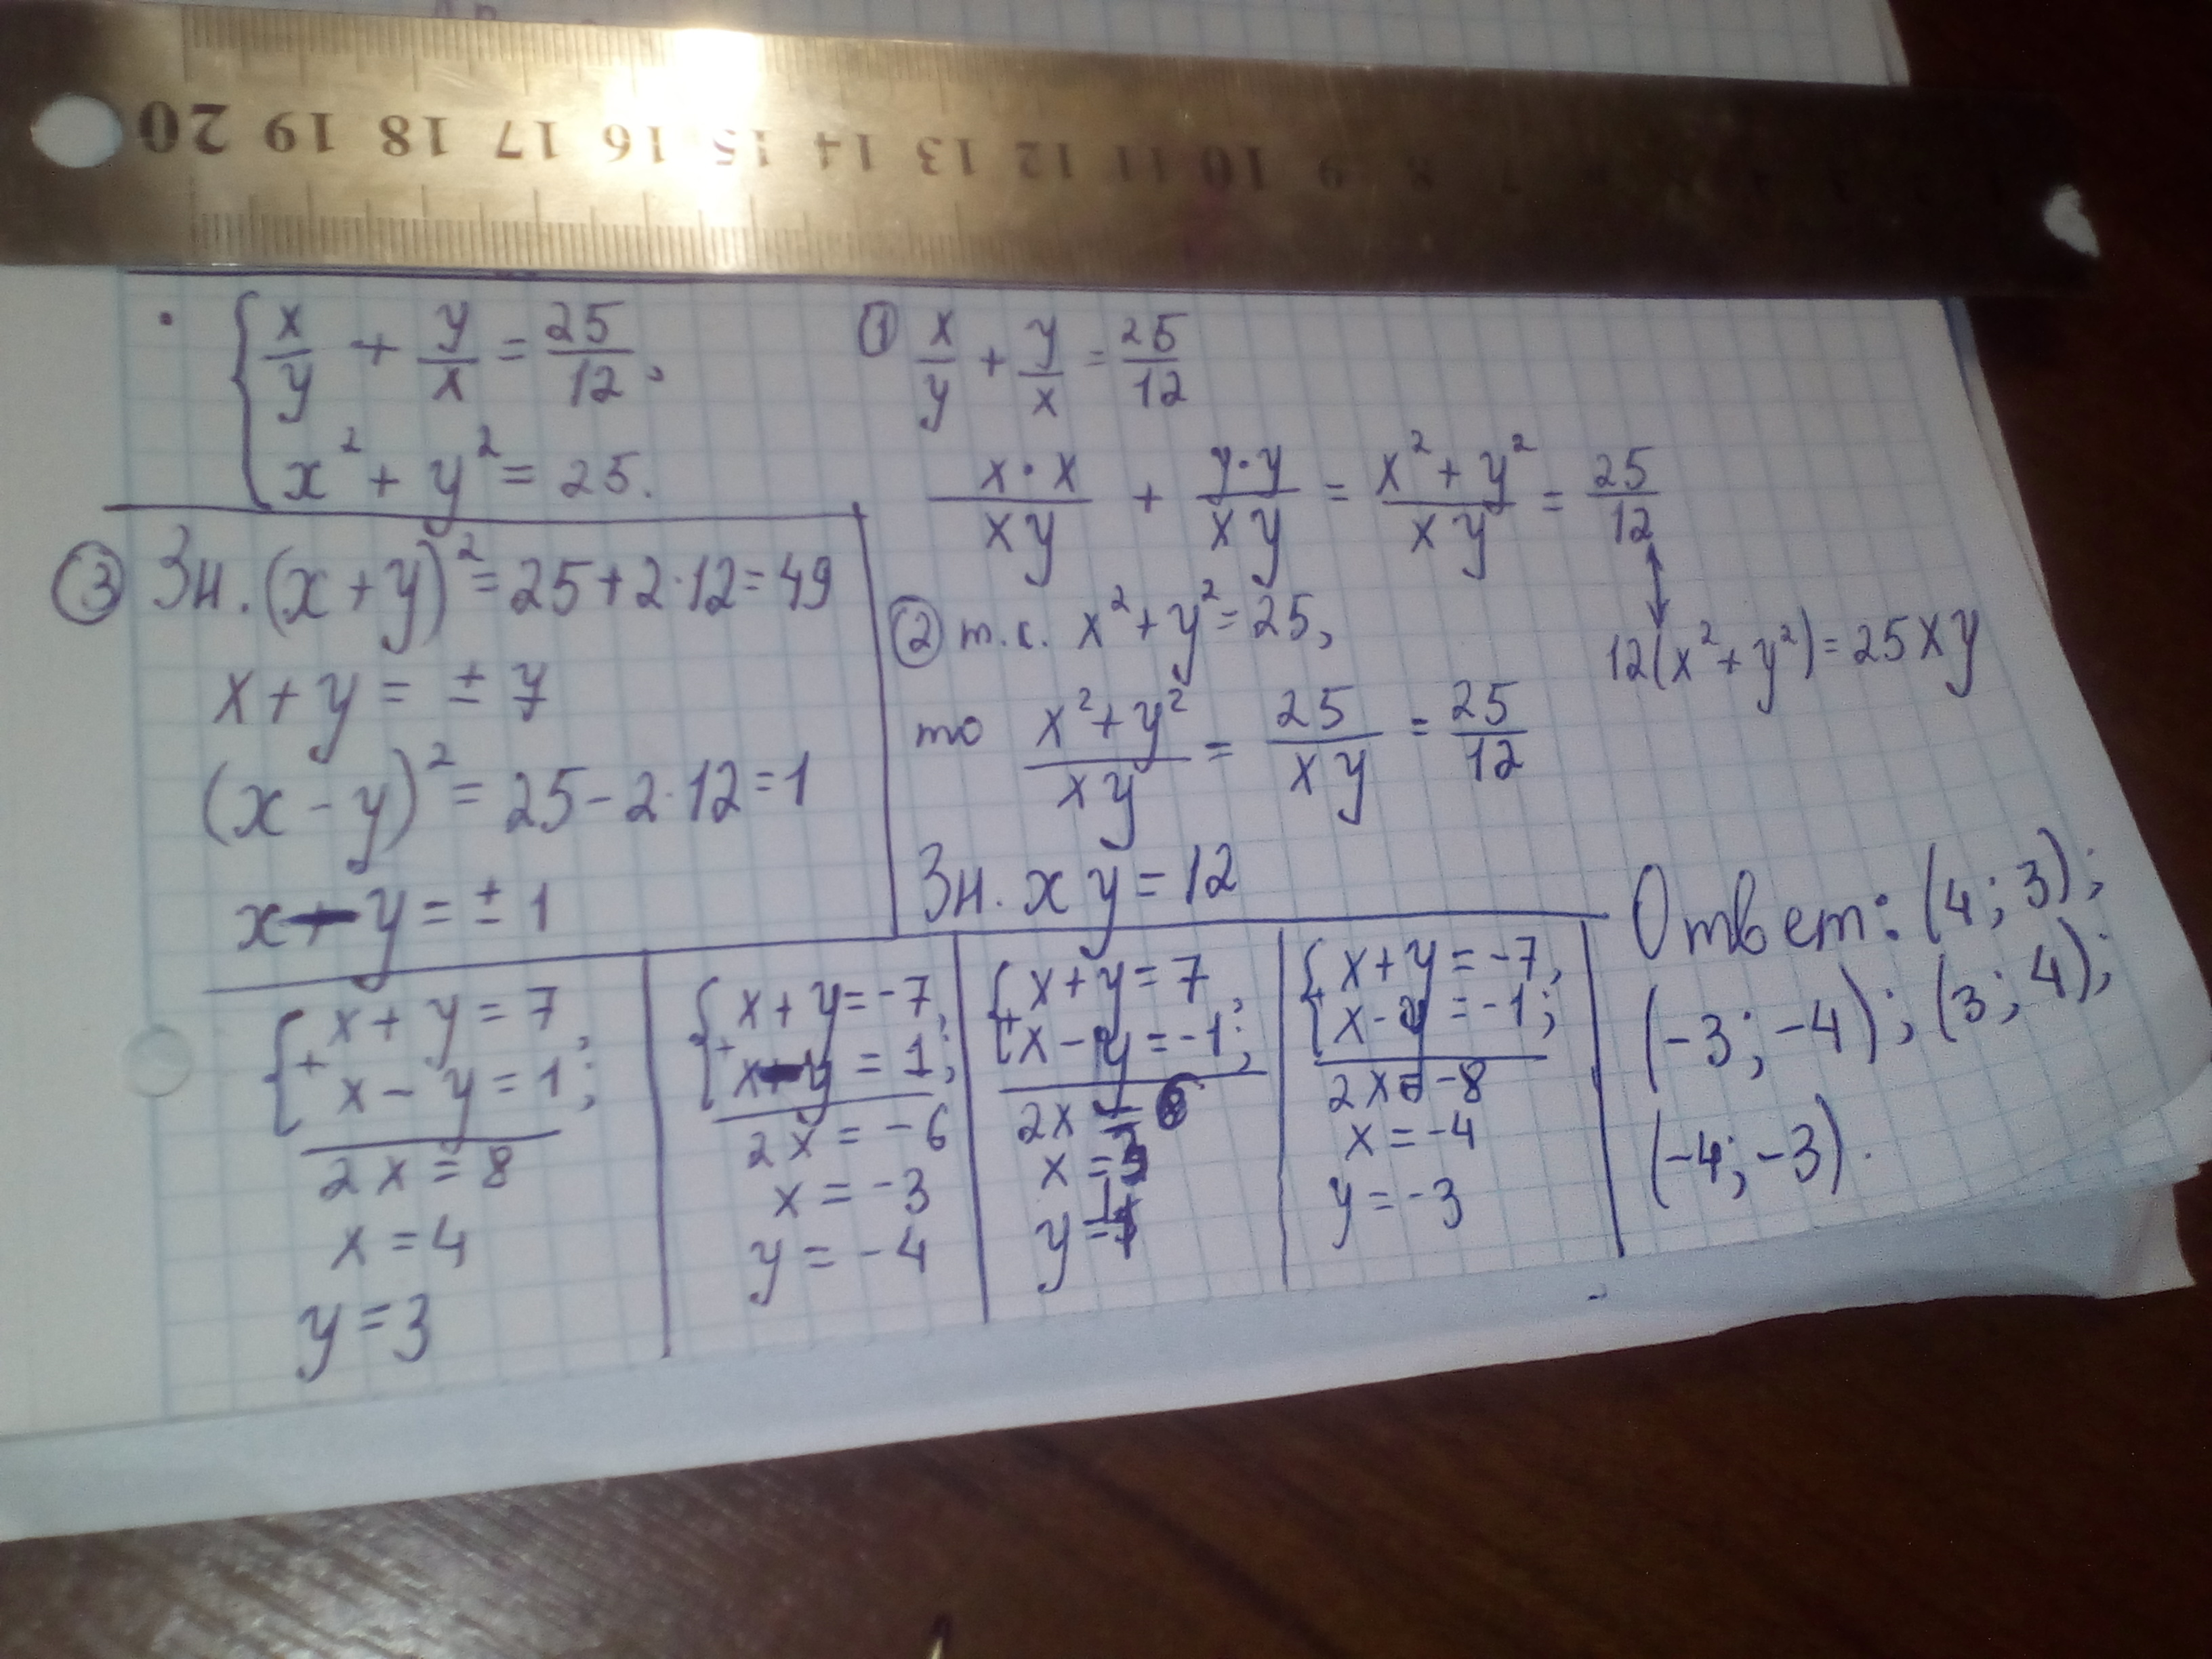 20 19 18 17 16 15 14 13 12 11 10 9 8 7
{ x/y + y/x = 25/12,
x² + y² = 25.
① x/y + y/x = 25/12
x·x/xy + y·y/xy = x² + y²/xy = 25/12
12(x² + y²) = 25xy
② т.к. x² + y² = 25,
то x² + y²/xy = 25/xy = 25/12
Зн. xy = 12
③ Зн. (x + y)² = 25 + 2·12 = 49
x + y = ± 7
(x - y)² = 25 - 2·12 = 1
x - y = ± 1
{ + x + y = 7,
x - y = 1;
2x = 8
x = 4
y = 3
{ + x + y = -7,
x - y = 1;
2x = -6
x = -3
y = -4
{ + x + y = 7,
x - y = -1;
2x = 6
x = 3
y = 4
{ + x + y = -7,
x - y = -1;
2x = -8
x = -4
y = -3
Ответ: (4; 3);
(-3; -4); (3; 4);
(-4; -3).